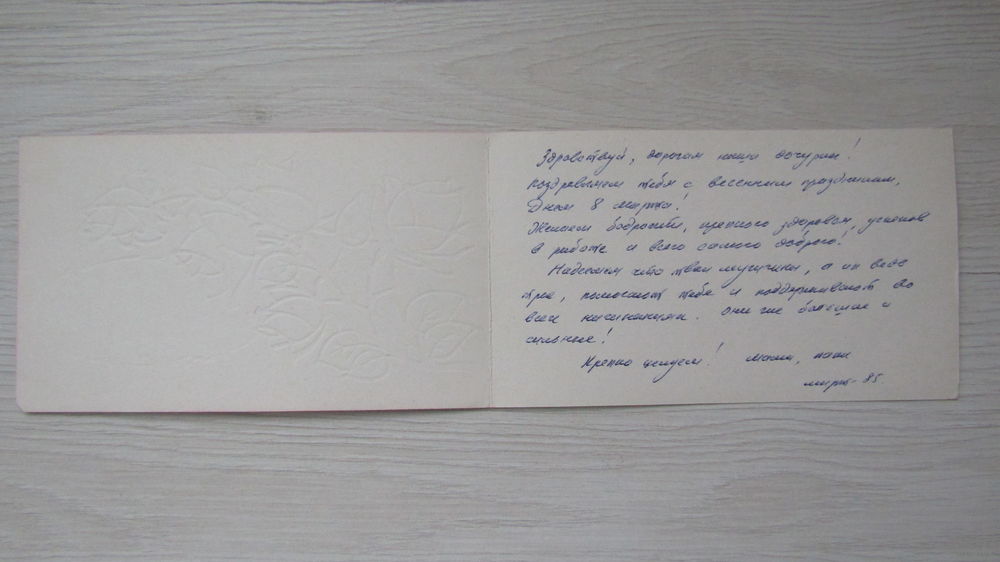 Здравствуй, дорогая наша дочурка!
Поздравляем тебя с весенним праздником,
Днем 8 марта!
Желаем бодрости, крепкого здоровья, успехов
в работе и всего самого доброго!
Надеемся что твои мужчины, а их ведь
трое, помогают тебе и поддерживают во
всех начинаниях. Они же большие и
сильные!
Крепко целуем! мама, папа
март-85.